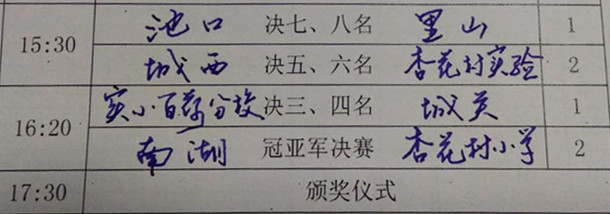 15:30 池口 决七、八名 里山 1
城西 决五、六名 杏花村实验 2
16:20 实小百荷分校 决三、四名 城关 1
南湖 冠亚军决赛 杏花村小学 2
17:30 颁奖仪式